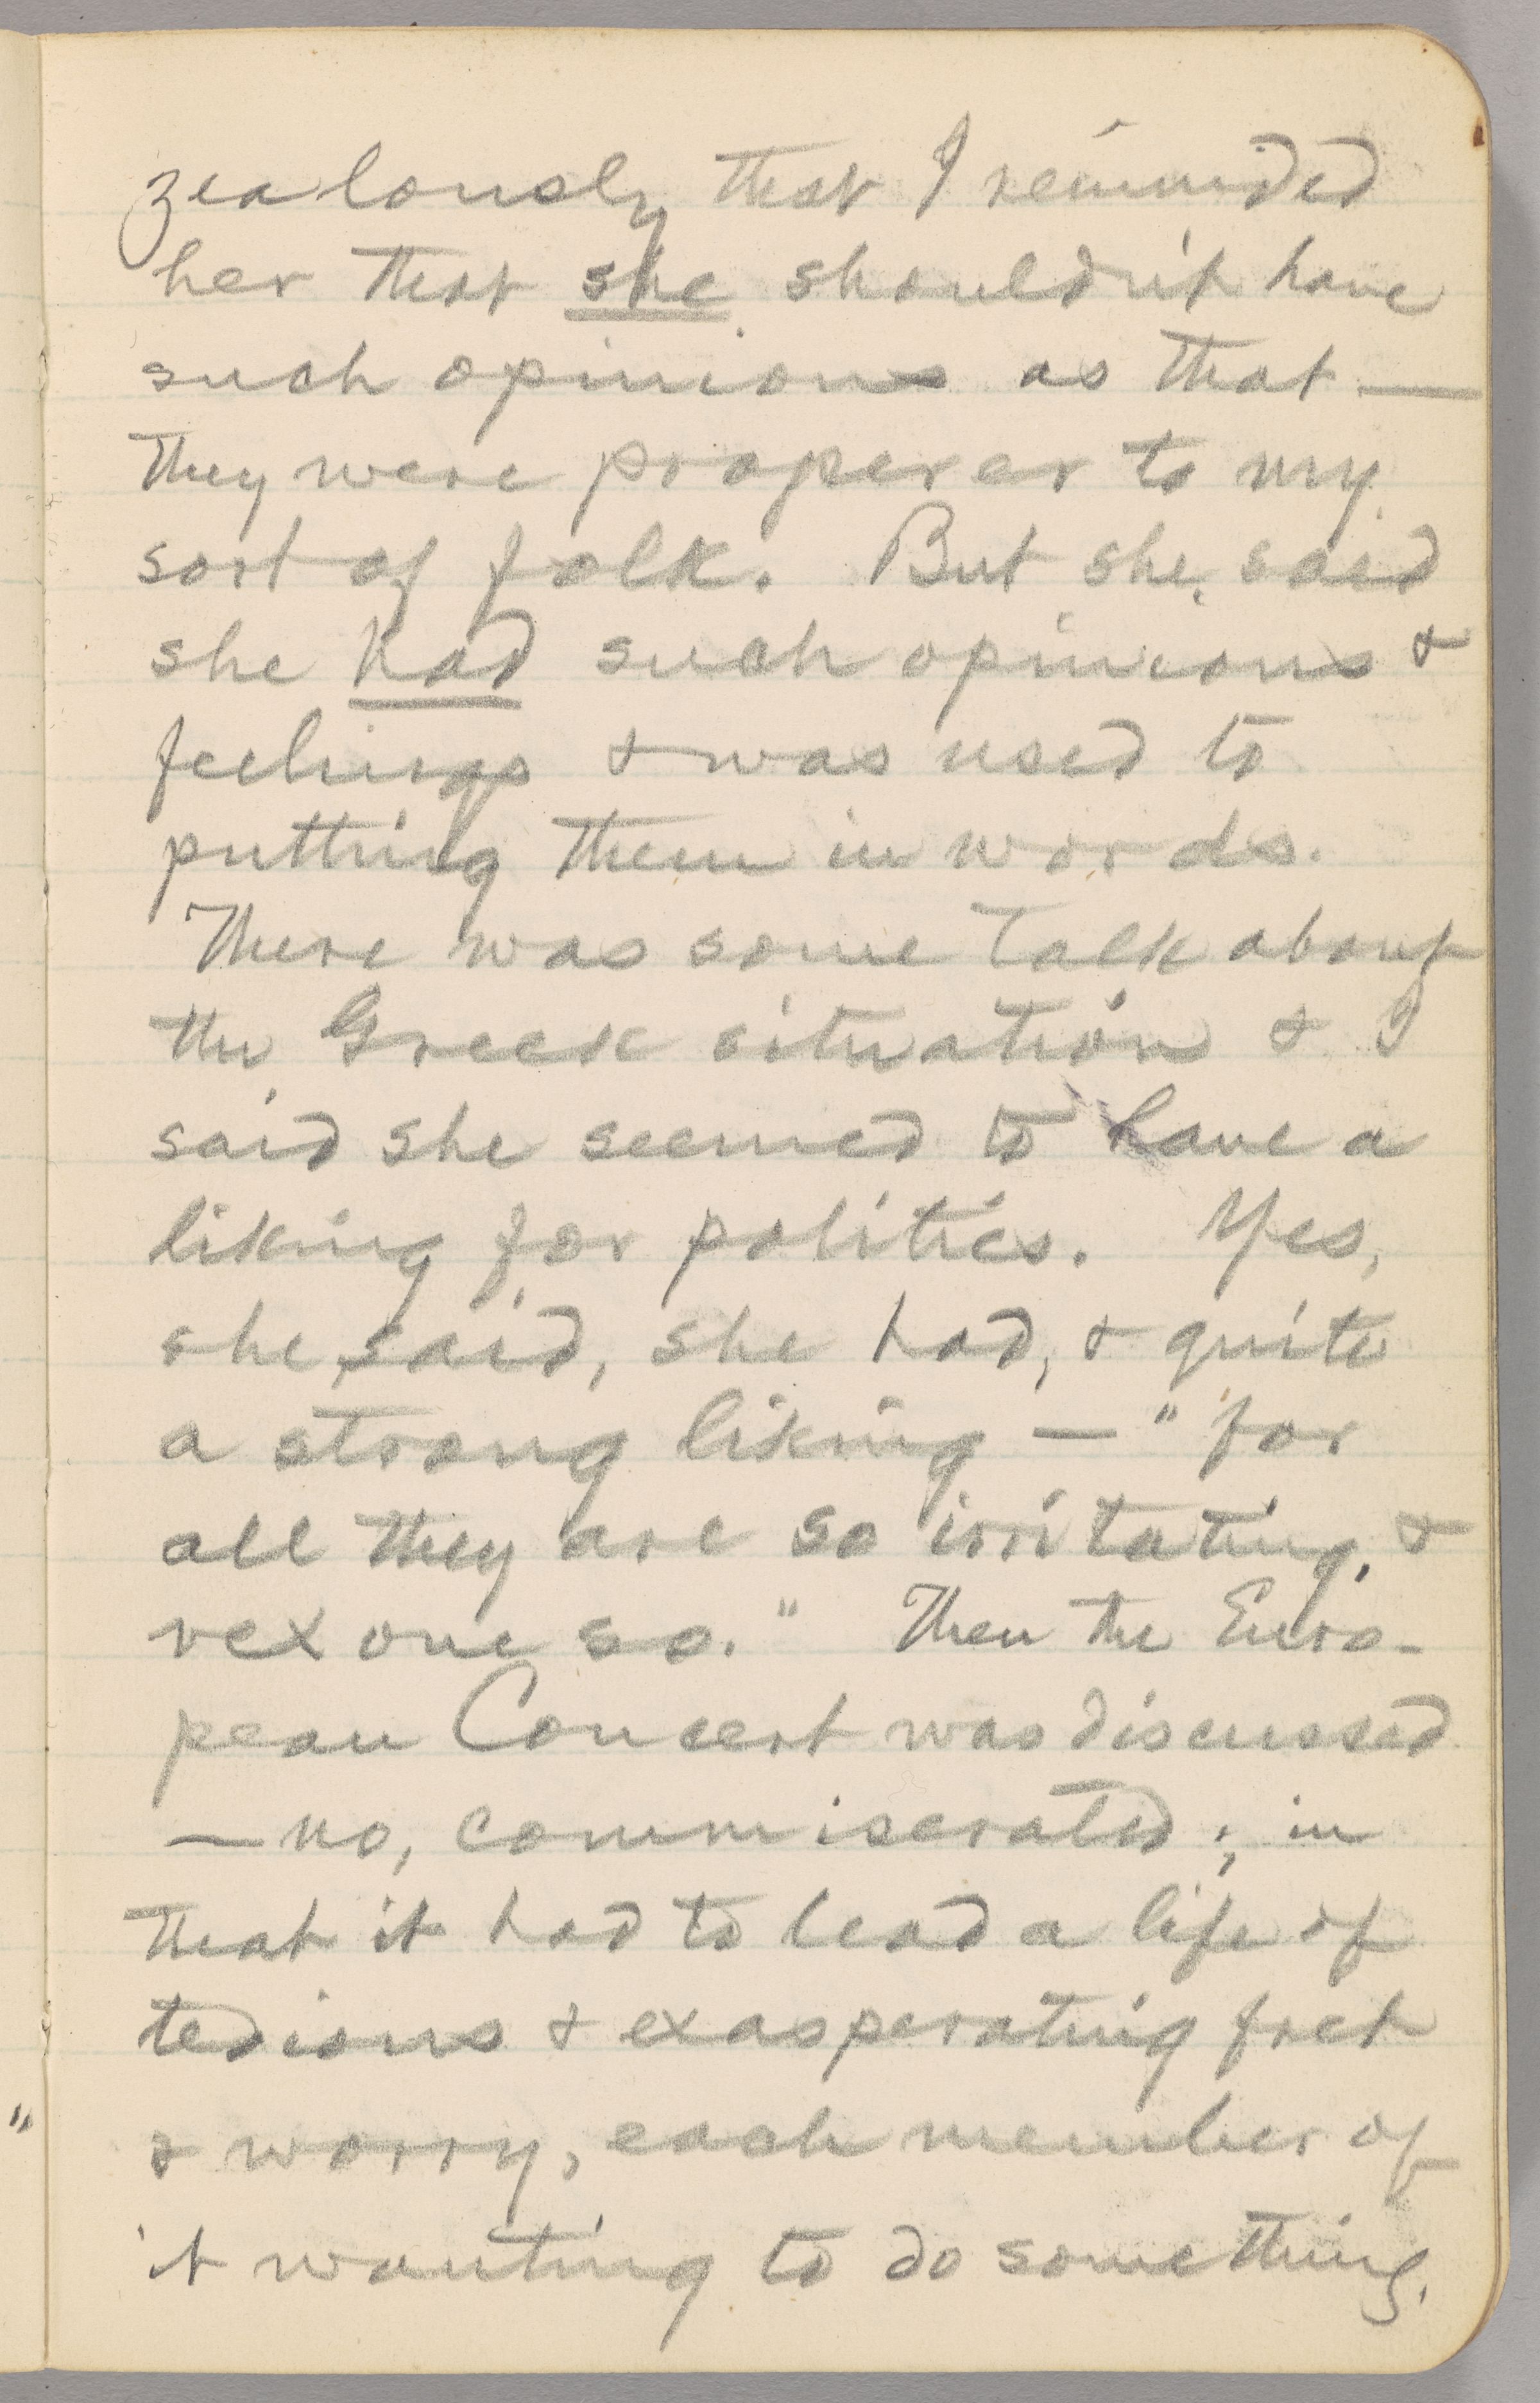 zealously that I reminded
her that she shouldn't have
such opinions as that —
they were properer to my
sort of folk. But she said
she had such opinions &
feelings & was used to
putting them in words.
There was some talk about
the Greek situation & I
said she seemed to have a
liking for politics. Yes,
she said, she had, & quite
a strong liking — "for
all they are so irritating, &
vex one so." Then the Euro-
pean Concert was discussed
— no, commiserated; in
that it had to lead a life of
tedious & exasperating fret
"
& worry, each member of
it wanting to do something,